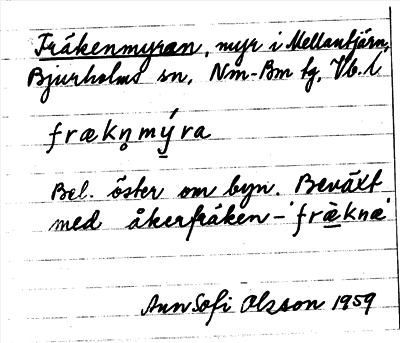 Fräkenmyran, myr i Mellantjärn,
Bjurholms sn, Nm-Bm tg, Vb. l
frækn̥mýra
Bel. öster om byn. Beväxt
med åkerfräken – 'fræ̀knæ'
Ann Sofi Olsson 1959